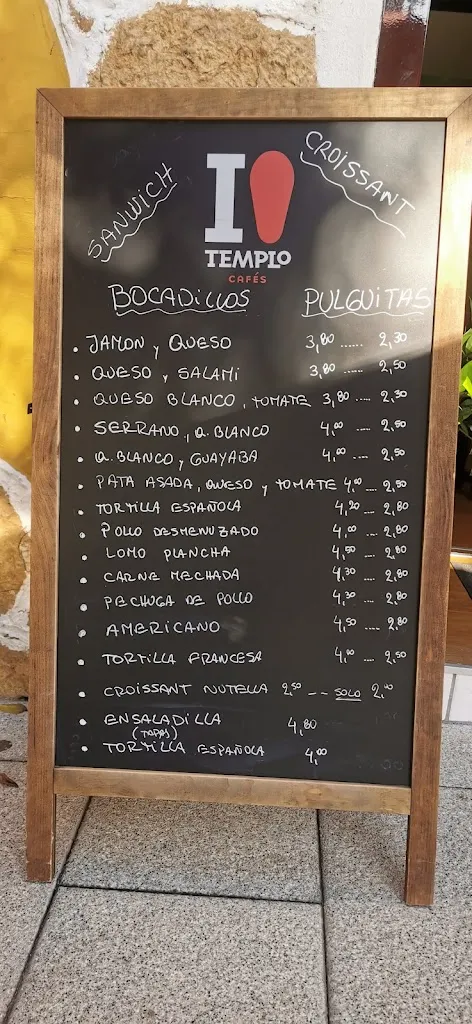 SANWICH
CROISSANT
I
TEMPLO
CAFÉS
BOCADILLOS PULGUITAS
. JAMON y QUESO 3,80 ...... 2,30
. QUESO y SALAMI 3,80 ..... 2,50
. QUESO BLANCO, TOMATE 3,80 ..... 2,30
. SERRANO, Q. BLANCO 4,00 ..... 2,50
. Q. BLANCO y GUAYABA 4,00 .... 2,50
. PATA ASADA, QUESO y TOMATE 4,00 .... 2,50
. TORTILLA ESPAÑOLA 4,20 .... 2,80
. POLLO DESMENUZADO 4,00 ... 2,80
. LOMO PLANCHA 4,50 .... 2,80
. CARNE MECHADA 4,30 .... 2,80
. PECHUGA DE POLLO 4,30 ... 2,80
. AMERICANO 4,50 .... 2,80
. TORTILLA FRANCESA 4,00 .... 2,50
. CROISSANT NUTELLA 2,50 -- SOLO 2,00
. ENSALADILLA 4,80
(TAPAS)
. TORTILLA ESPAÑOLA 4,00